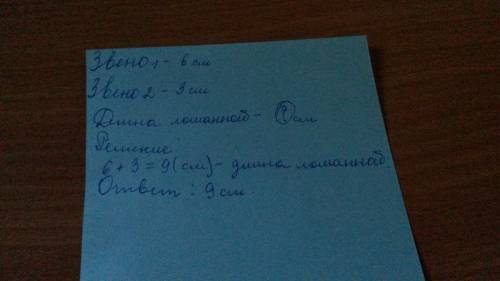 Звено 1 - 6 см
Звено 2 - 3 см
Длина ломанной - ? см
Решение:
6 + 3 = 9 (см) - длина ломанной.
Ответ: 9 см.